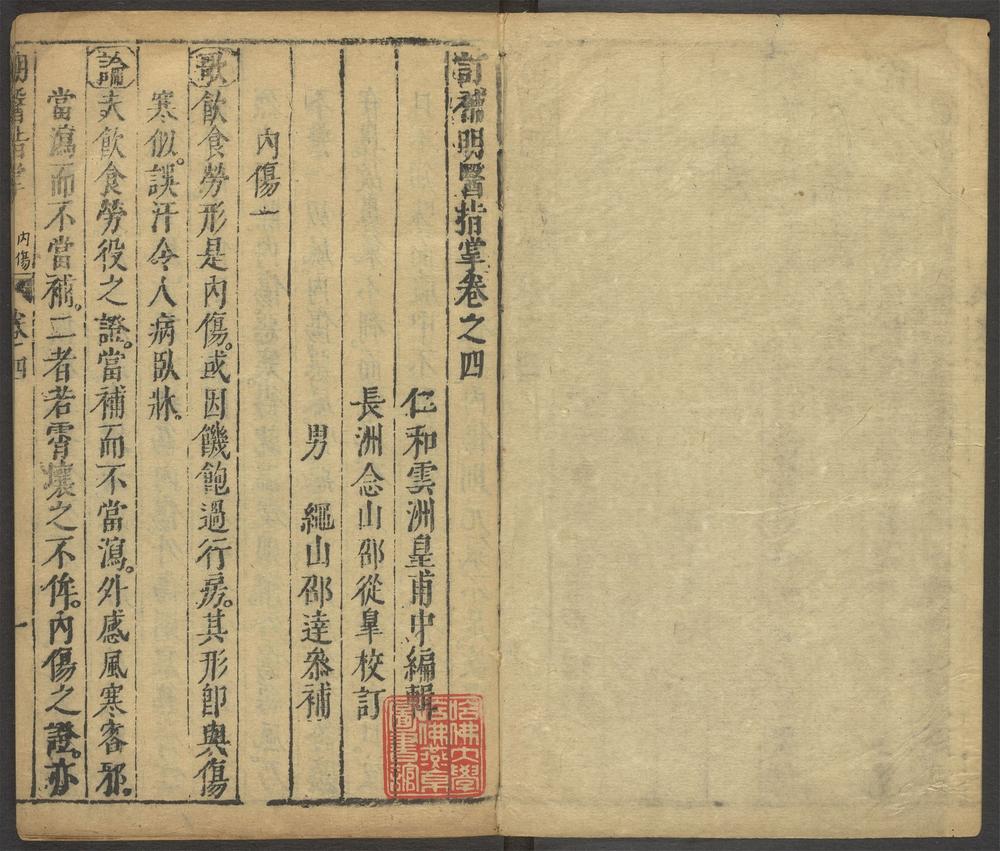 訂補明醫指掌卷之四
仁和雲洲皇甫中編輯
長洲念山邵從皐校訂
男 繩山邵逹叅補
內傷一
歌飲食勞形是內傷。或因饑飽過行房。其形卽與傷
寒似。誤汗令人病臥牀。
論夫飲食勞役之證。當補而不當瀉。外感風寒客邪。
當瀉而不當補。二者若霄壤之不侔。內傷之證。亦
明醫指掌 內傷 卷四 一
哈佛大學
哈佛燕京
圖書館